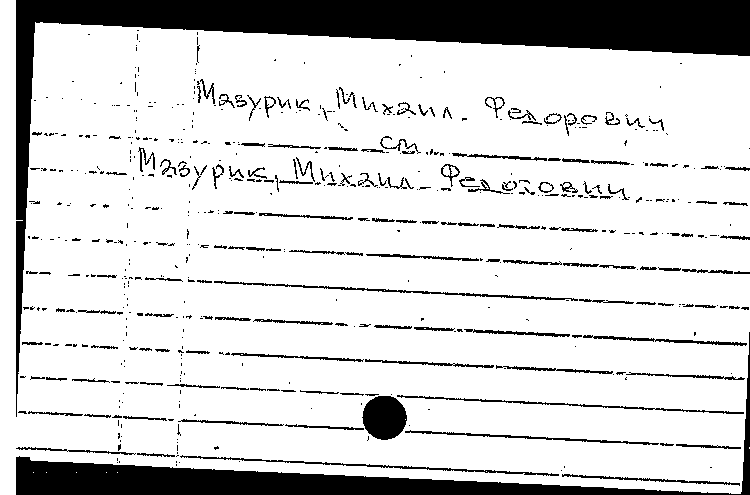 Мазурик, Михаил Федорович
см.
Мазурик, Михаил Федотович.